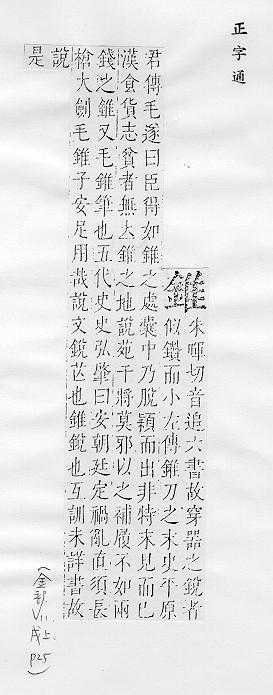 正字通
錐
朱暉切音追六書故穿器之銳者
似鑽而小左傳錐刀之末史平原
君傳毛遂曰臣得如錐之處囊中乃脫穎而出非特末見而已
漢食貨志貧者無立錐之地說苑干將莫邪以之補履不如兩
錢之錐又毛錐筆也五代史史弘肇曰安朝廷定禍亂直須長
槍大劍毛錐子安足用哉說文銳芒也錐銳也互訓未詳書故
說
是
(金部 V11 戌上 P25)